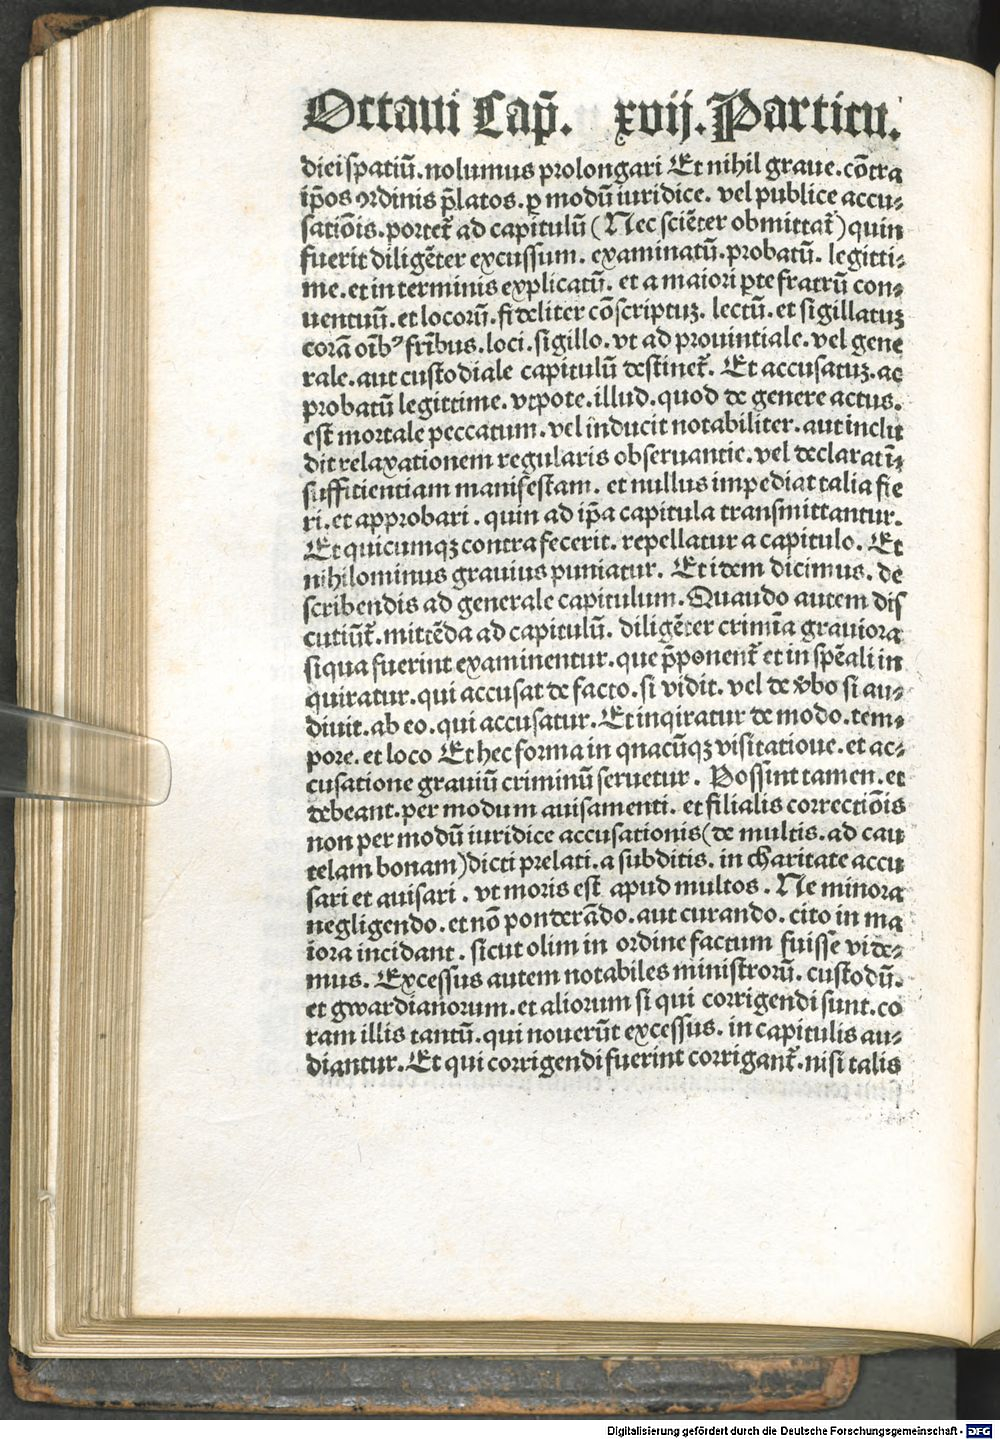 Octaui Cap̃. xvij. Particu.
diei spatiū. nolumus prolongari Et nihil graue. cōtra
ip̃os ordinis p̃latos. ꝑ modū iuridice. vel publice accu⸗
satiōis. portet᷑ ad capitulū (Nec sciēter obmittat᷑) quin
fuerit diligēter excussum. examinatū. probatū. legitti⸗
me. et in terminis explicatū. et a maiori ꝑte fratrū con⸗
uentuū. et locorū. fideliter cōscriptuꝫ. lectū. et sigillatuꝫ
corā oīb᷒ fr̄ibus. loci. sigillo. vt ad prouintiale. vel gene
rale. aut custodiale capitulū destinet᷑. Et accusatuꝫ. ac
probatū legittime. vtpote. illud. quod de genere actus.
est mortale peccatum. vel inducit notabiliter. aut inclu
dit relaxationem regularis obseruantie. vel declarat ī⸗
suffitientiam manifestam. et nullus impediat talia fie
ri. et approbari. quin ad ip̃a capitula transmittantur.
Et quicumqꝫ contra fecerit. repellatur a capitulo. Et
nihilominus grauius puniatur. Et item dicimus. de
scribendis ad generale capitulum. Quando autem dis
cutiūt᷑. mittēda ad capitulū. diligēter crimīa grauiora
si qua fuerint examinentur. que p̃ponent᷑ et in spēali in
quiratur. qui accusat de facto. si vidit. vel de v̾bo si au⸗
diuit. ab eo. qui accusatur. Et inqiratur de modo. tem⸗
pore. et loco Et hec forma in qnacūqꝫ visitatioue. et ac⸗
cusatione grauiū criminū seruetur. Possint tamen. et
debeant. per modum auisamenti. et filialis correctiōis
non per modū iuridice accusationis (de multis. ad cau
telam bonam) dicti prelati. a subditis. in charitate accu
sari et auisari. vt moris est apud multos. Ne minora
negligendo. et nō ponderādo. aut curando. cito in ma
iora incidant. sicut olim in ordine factum fuisse vide⸗
mus. Excessus autem notabiles ministrorū. custodū.
et gwardianorum. et aliorum si qui corrigendi sunt. co
ram illis tantū. qui nouerūt excessus. in capitulis au⸗
diantur. Et qui corrigendi fuerint corrigant᷑. nisi talis
Digitalisierung gefördert durch die Deutsche Forschungsgemeinschaft - DFG